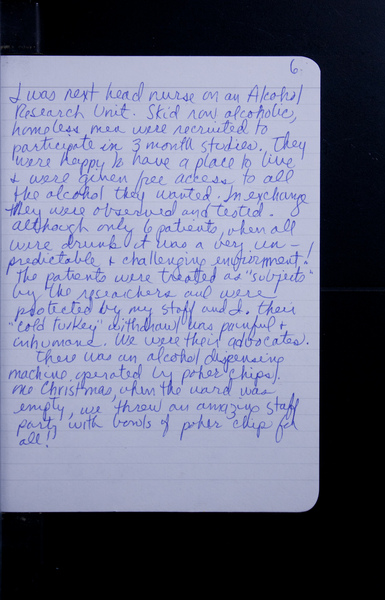 6.
I was next head nurse on an Alcohol
Research Unit. Skid row alcoholic,
homeless men were recruited to
participate in 3 month studies. They
were happy to have a place to live
& were given free access to all
the alcohol they wanted. In exchange
they were observed and tested.
Although only 6 patients, when all
were drunk it was a very un-
predictable & challenging environment!
The patients were treated as "subjects"
by the researchers and were
protected by my staff and I. Their
"cold turkey" withdrawl was painful &
inhumane. We were their advocates.
There was an alcohol dispensing
machine operated by poker chips!
One Christmas, when the ward was
empty, we threw an amazing staff
party with bowls of poker chips for
all!